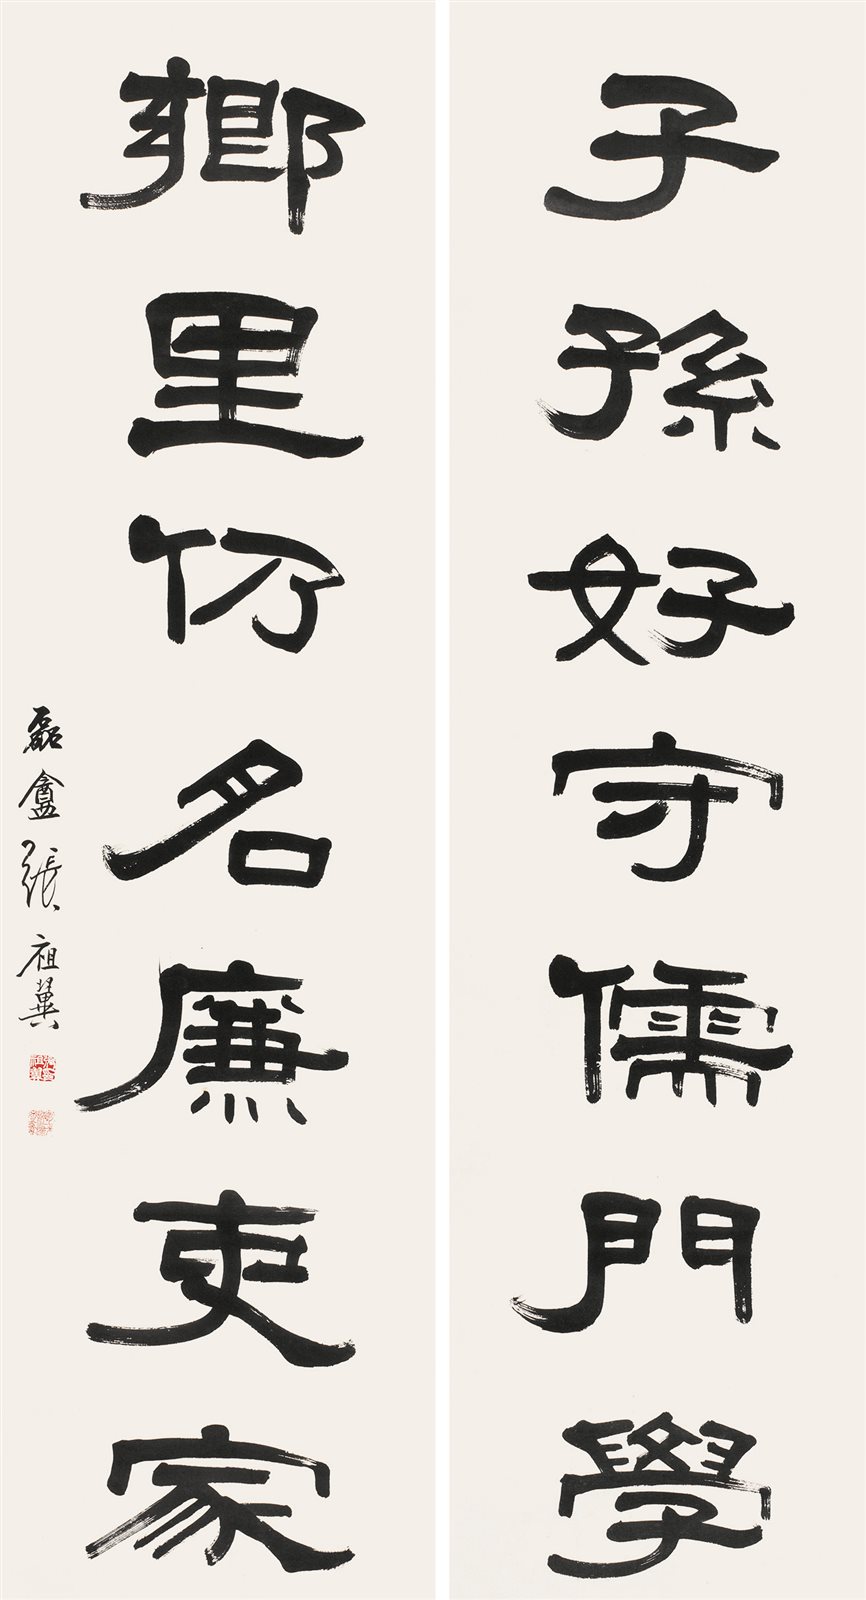 子孫好守儒門學
鄉里仍名廉吏家
磊盦張祖翼